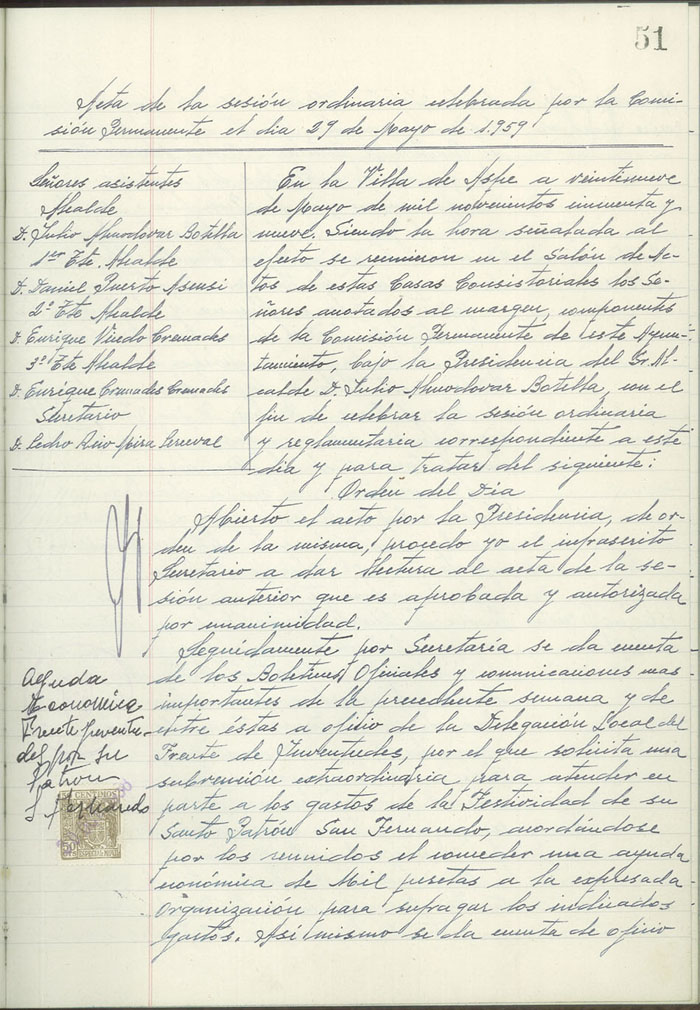 51
Acta de la sesión ordinaria celebrada por la Comi-
sión Permanente el dia 29 de Mayo de 1.959
Señores asistentes
Alcalde
D. Julio Almodovar Botella
1er Tte. Alcalde
D. Daniel Puerto Asensi
2º Tte Alcalde
D. Enrique Viudo Cremades
3º Tte Alcalde
D. Enrique Cremades Cremades
Secretario
D. Pedro Mira
En la Villa de Aspe a veintinueve
de Mayo de mil novecientos cincuenta y
nueve. Siendo la hora señalada al
efecto se reunieron en el Salón de Ac-
tos de estas Casas Consistoriales los Se-
ñores anotados al margen, componentes
de la Comisión Permanente de este Ayun-
tamiento, bajo la Presidencia del Sr. Al-
calde D. Julio Almodovar Botella, con el
fin de celebrar la sesión ordinaria
y reglamentaria correspondiente a este
día y para tratar del siguiente:
Orden del Dia
Abierto el acto por la Presidencia, de or-
den de la misma, procedo yo el infrascrito
Secretario a dar lectura al acta de la se-
sión anterior que es aprobada y autorizada
por unanimidad.
Seguidamente por Secretaría se da cuenta
de los Boletines Oficiales y comunicaciones mas
importantes de la precedente semana y de
entre éstas a oficio de la Delegación Local del
Frente de Juventudes, por el que solicita una
subvención extraordinaria para atender en
parte a los gastos de la Festividad de su
Santo Patrón San Fernando, acordándose
por los reunidos el conceder una ayuda
económica de Mil pesetas a la expresada
Organización para sufragar los indicados
gastos. Así mismo se da cuenta de oficio
Ayuda
Economica
Frente Juventu-
des por su
Patron
S. Fernando
50 CENTIMOS
50
ESPECIAL MOVIL